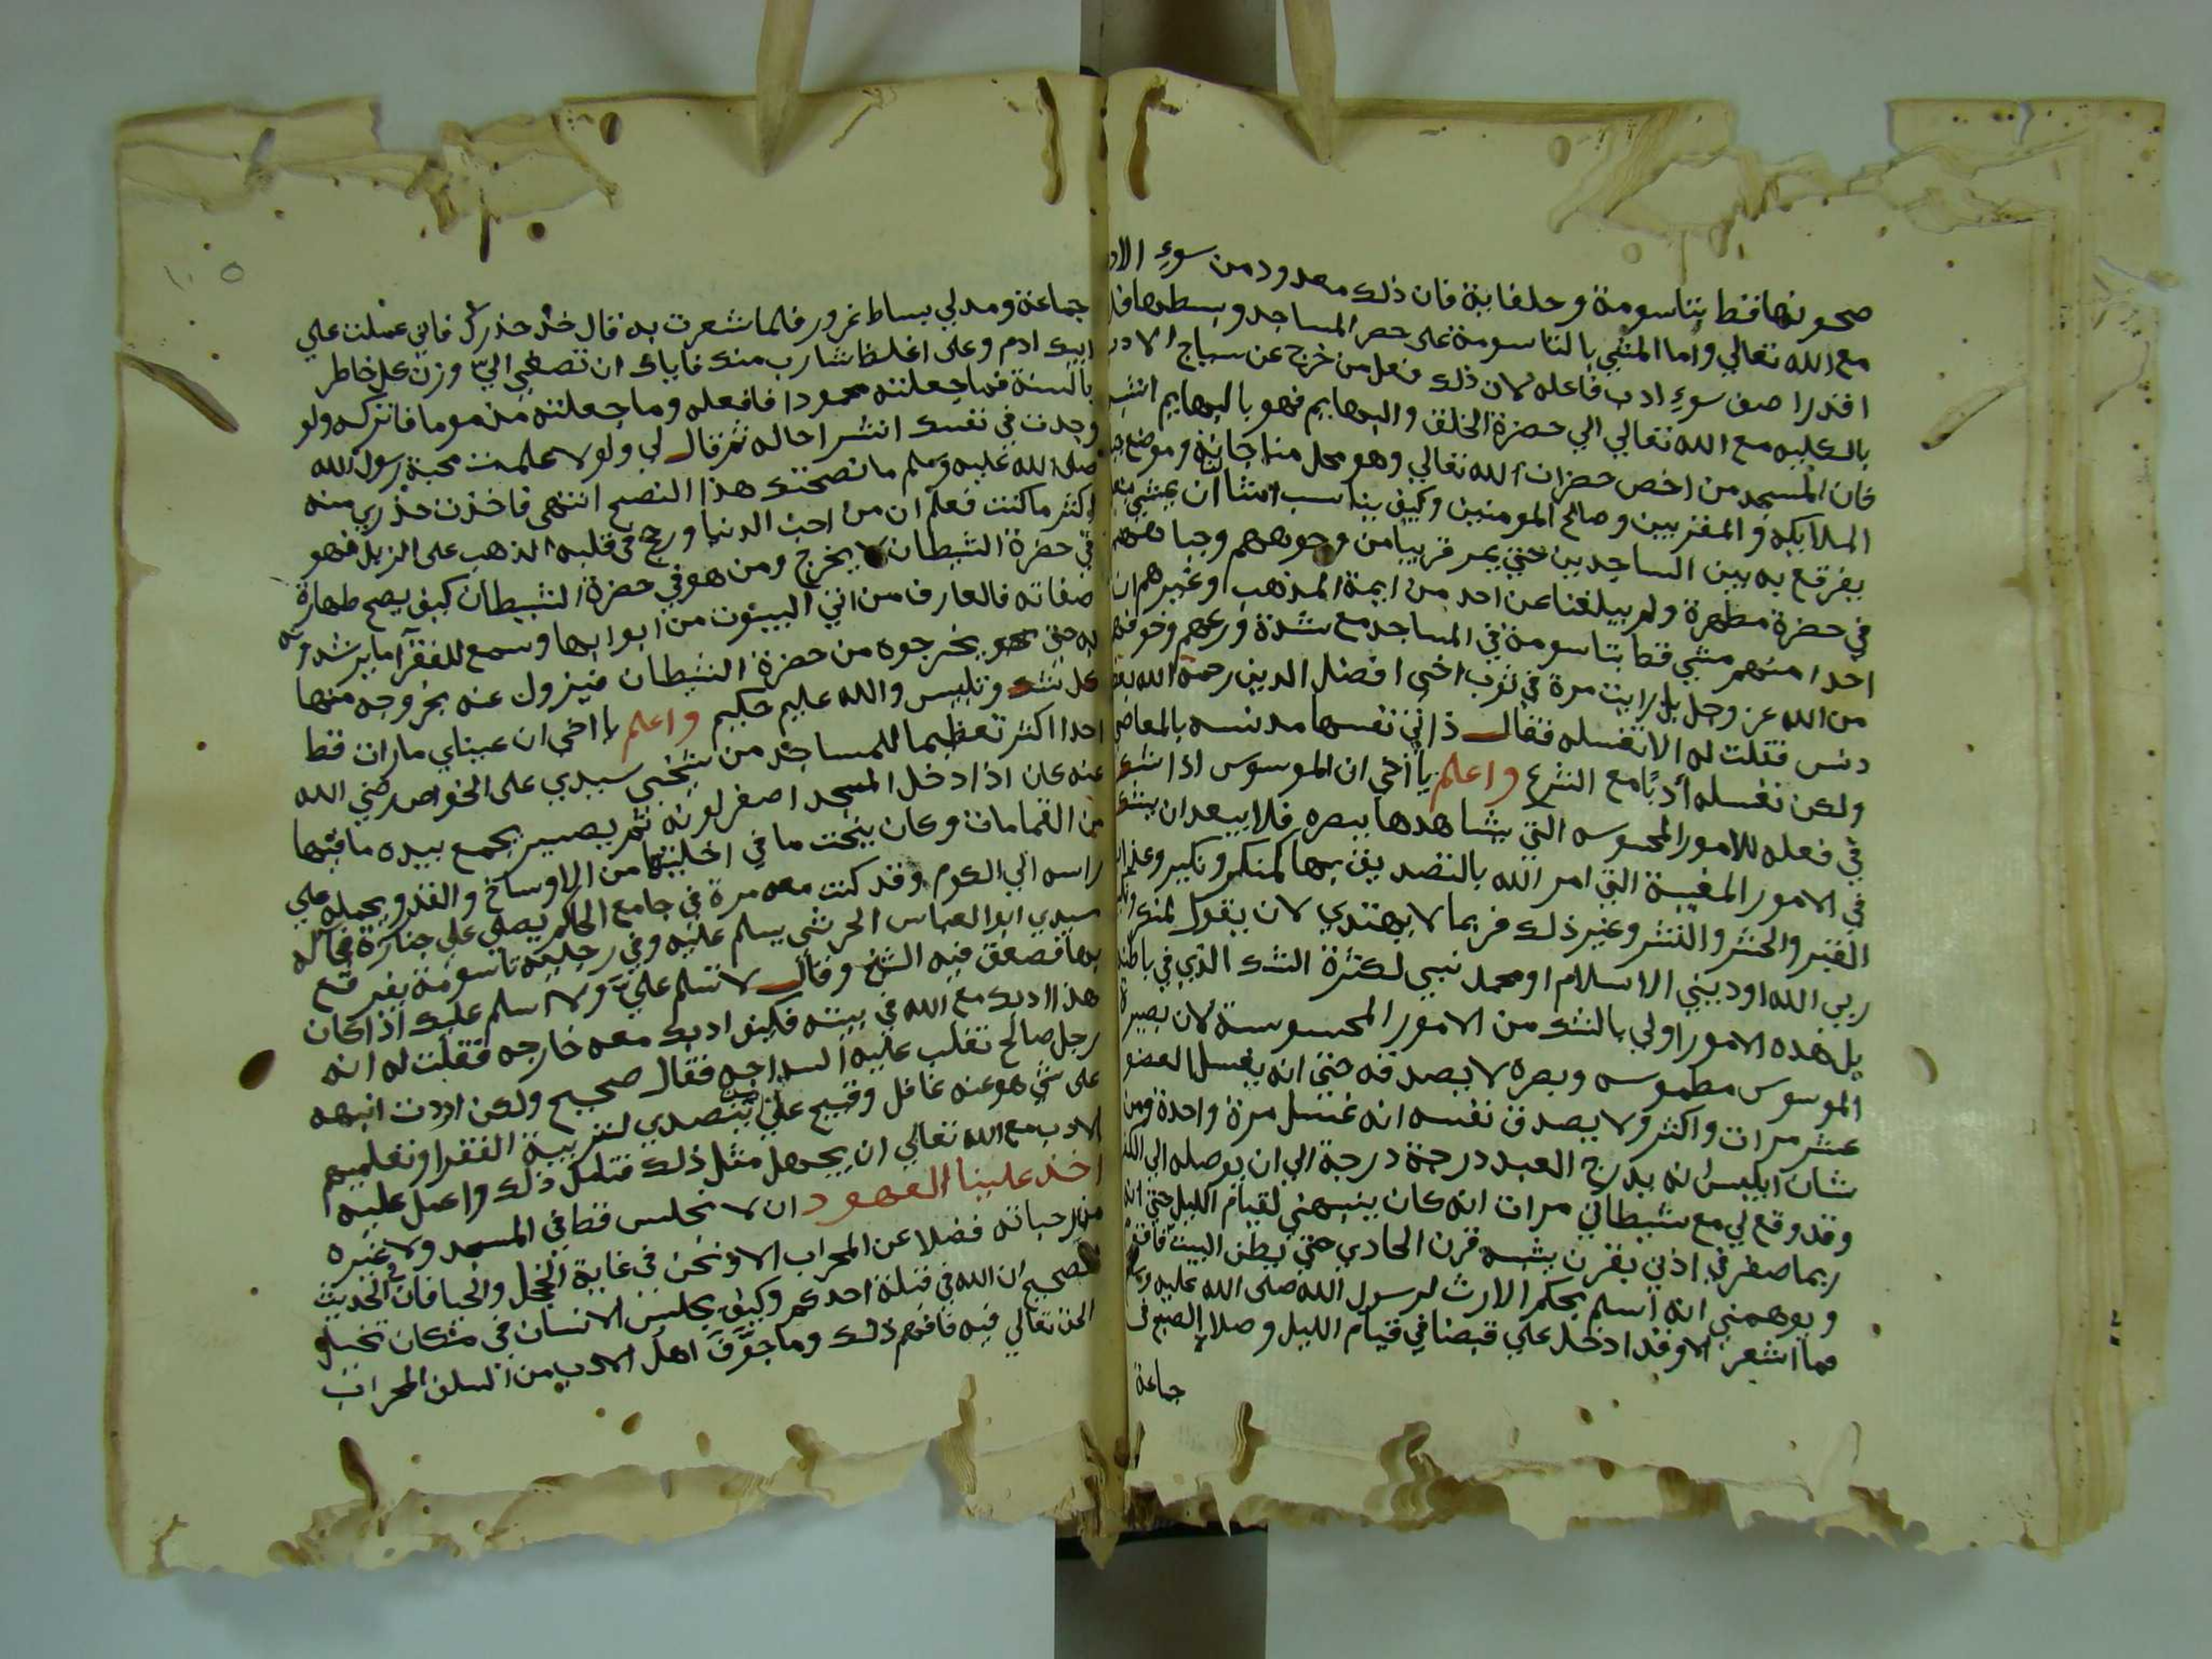 صحونها قط بتاسومة وحلفاية فان ذلك معدود من سوء الاد
مع الله تعالي واما المشي بالتاسومة على حصر المساجد وبسطها فل
اقذرا صف سوء ادب فاعله لان ذلك فعل من خرج عن سياج الادب
بالكليه مع الله تعالي الي حضرة الخلق والبهايم فهو بالبهايم اشبه
فان المسجد من اخص حضرات الله تعالي وهو محل مناجاته وموضع
الملايكه والمقربين وصالح المومنين وكيف يناسب انسانا ان يمشي بنعل
يفرقع به بين الساجدين حتي يمر قريبا من وجوههم وجباههم
في حضرة مطهرة ولم يبلغنا عن احد من ايمة المذهب وغيرهم ان
احدا منهم مشي قط بتاسومة في المساجد مع شدة ورعهم وخوفهم
من الله عز وجل بل رايت مرة في ثوب اخي افضل الدين رحمة الله تعا
دنس فقلت له الا تغسله فقال ذاتي نفسها مدنسه بالمعاصي
ولكن نغسله أدبًا مع الشرع واعلم يا أخي ان الموسوس اذا شك
في فعله للامور المحسوسه التي يشاهدها ببصره فلا يبعد ان يشك
في الامور المغيبة التي امر الله بالتصديق بها كمنكر ونكير وعذاب
القبر والحشر والنشر وغير ذلك فربما لا يهتدي لان يقول لمنكر ونكير
ربي الله او ديني الاسلام او محمد نبيي لكثرة الشك الذي في باطنه
بل هذه الامور اولي بالشك من الامور المحسوسة لان بصيرة
الموسوس مطموسه وبصره لا يصدقه حتى انه يغسل العضو
عشر مرات واكثر ولا يصدق نفسه انه غسل مرة واحدة ومن
شان ابليس انه يدرج العبد درجة درجة الي ان يوصله الي الكفر
وقد وقع لي مع شيطاني مرات انه كان ينبهني لقيام الليل حتى انه
ربما صفر في اذني بقرن يشبه قرن الحادي حتى يطن البيت فاقوم
ويوهمني انه اسلم بحكم الارث لرسول الله صلى الله عليه وسلم
فما اشعر الا وقد ادخل علي قبضا في قيام الليل وصلاة الصبح في
جماعة
جماعة ومد لي بساط غرور فلما شعرت به قال خذ حذرك فاني عملت علي
ابيك ادم وعلى اغلظ شارب منك فاياك ان تصغي الىّ وزن كل خاطر
بالسنة فما جعلته محمودا فافعله وما جعلته مذموما فاتركه ولو
وجدت في نفسك انشراحا له ثم قال لي ولولا علمت محبة رسول الله
صلى الله عليه وسلم ما نصحتك هذا النصح انتهى فاخذت حذري منه
اكثر ما كنت فعلم ان من احب الدنيا ورجح في قلبه الذهب على الزبل فهو
في حضرة الشيطان لا يخرج ومن هو في حضرة الشيطان كيف يصح طهارة
صفاته فالعارف من اتي البيوت من ابوابها وسمع للفقرآ ما يرشدونه
له حتى يخرجوه من حضرة الشيطان فيزول عنه بخروجه منها
كل شك وتلبيس والله عليم حكيم واعلم يا اخي ان عيناي مارات قط
احدا اكثر تعظيما للمساجد من شيخي سيدي على الخواص رضي الله
عنه كان اذا دخل المسجد اصفر لونه ثم يصير يجمع بيده ما فيها
من القمامات وكان ينحت ما في اخليتها من الاوساخ والقذر ويحمله علي
راسه الي الكوم وقد كنت معه مرة في جامع الحاكم يصلي علي جنازة فجا له
سيدي ابو العباس الحريثي يسلم عليه وفي رجليه تاسومة يفرقع
بها فصعق فيه الشيخ وقال لا تسلم عليّ ولا اسلم عليك اذا كان
هذا ادبك مع الله في بيته فكيف ادبك معه خارجه فقلت له انه
رجل صالح تغلب عليه السداجه فقال صحيح ولكن اردت انبهه
على شي هو عنه غافل وقبيح على من يتصدي لتربية الفقرا وتعليمهم
الادب مع الله تعالي ان يجهل مثل ذلك فتامل ذلك واعمل عليه
اخذ علينا العهود ان لا نجلس قط في المسجد ولا غيره
فضلا عن المحراب الا ونحن في غاية الخجل والحيا فان في الحديث
الصحيح ان الله في قبلة احدكم وكيف يجلس الانسان في مكان تجلي
الحق تعالي فيه فافهم ذلك وما جوّف اهل الادب من السلف المحراب
١٠٥